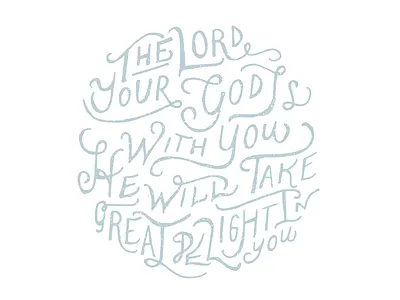 THE LORD
YOUR GOD IS
WITH YOU
HE WILL TAKE
GREAT DELIGHT IN
YOU